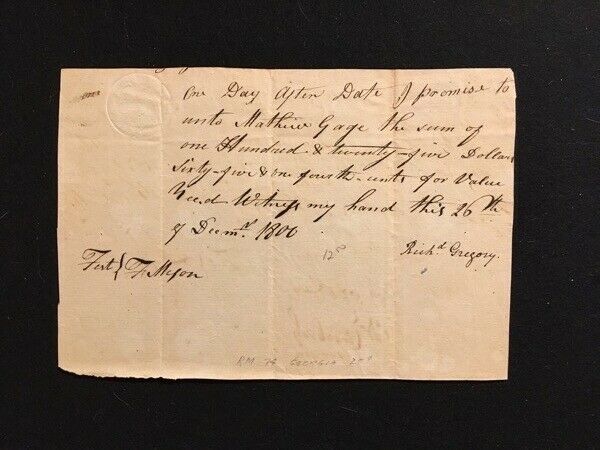 One Day After Date I promise to
unto Mathew Gage the sum of
one Hundred & twenty-five Dollars
Sixty-five & one fourth-cents for Value
Recd Witness my hand this 26th
of Decmr. 1800
Richd Gregory.
Test
12⁰
RM 74 GEORGIA 20⁰